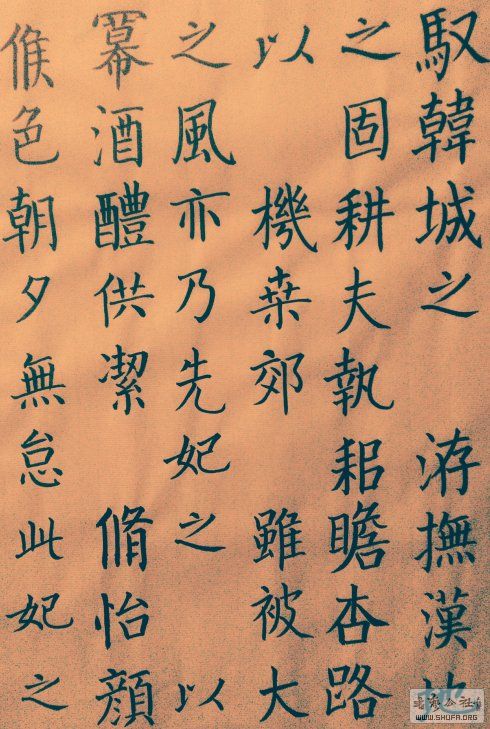 馭韓城之 洊撫漢
之固耕夫執耜瞻杏路
以 機桒郊 雖被大
之風亦乃先妃之 以
冪酒醴供潔 脩怡顔
候色朝夕無怠此妃之
WWW.SHUFA.ORG